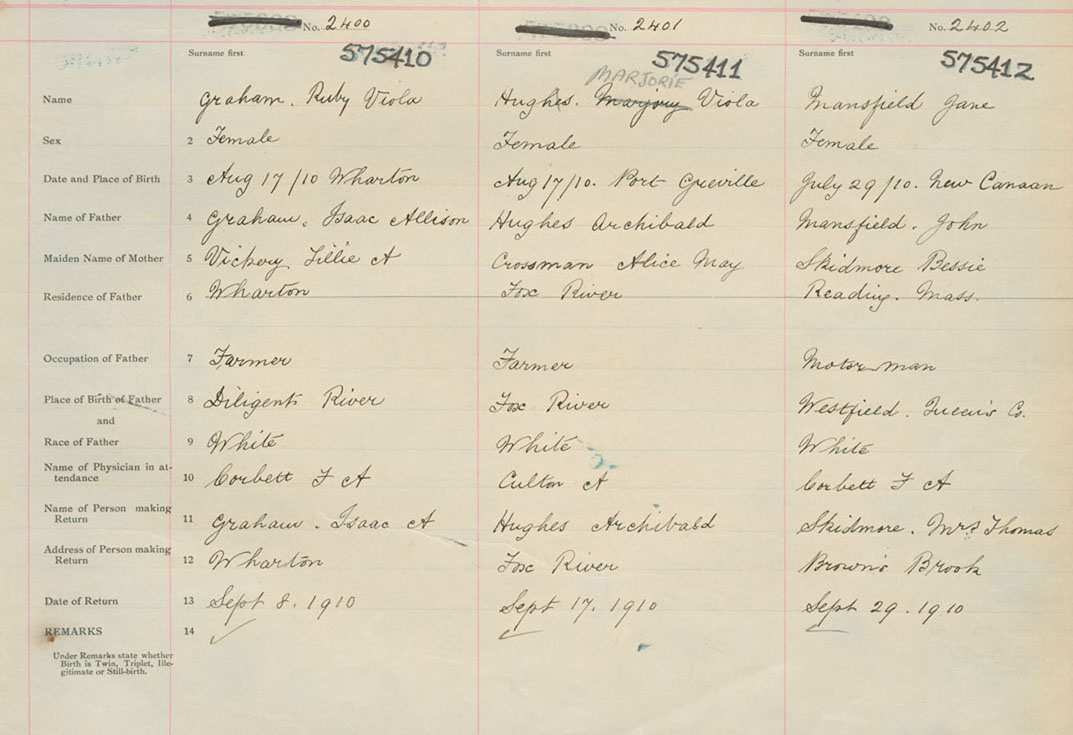 No. 2400 No. 2401 No. 2402
Surname first Surname first Surname first
575410 575411 575412
MARJORIE
Name Graham. Ruby Viola Hughes. Marjory Viola Mansfield Jane
Sex 2 Female Female Female
Date and Place of Birth 3 Aug 17/10 Wharton Aug 17/10. Port Greville July 29/10. New Canaan
Name of Father 4 Graham, Isaac Allison Hughes Archibald Mansfield. John
Maiden Name of Mother 5 Vickery Lillie A Crossman Alice May Skidmore Bessie
Residence of Father 6 Wharton Fox River Reading. Mass.
Occupation of Father 7 Farmer Farmer Motor man
Place of Birth of Father 8 Diligent River Fox River Westfield. Queen's Co.
and
Race of Father 9 White White White
Name of Physician in at-
tendance 10 Corbett F A Culton A Corbett F A
Name of Person making
Return 11 Graham. Isaac A Hughes Archibald Skidmore. Mrs Thomas
Address of Person making
Return 12 Wharton Fox River Brown's Brook
Date of Return 13 Sept 8. 1910 Sept 17. 1910 Sept 29. 1910
REMARKS 14
Under Remarks state whether
Birth is Twin, Triplet, Ille-
gitimate or Still-birth.